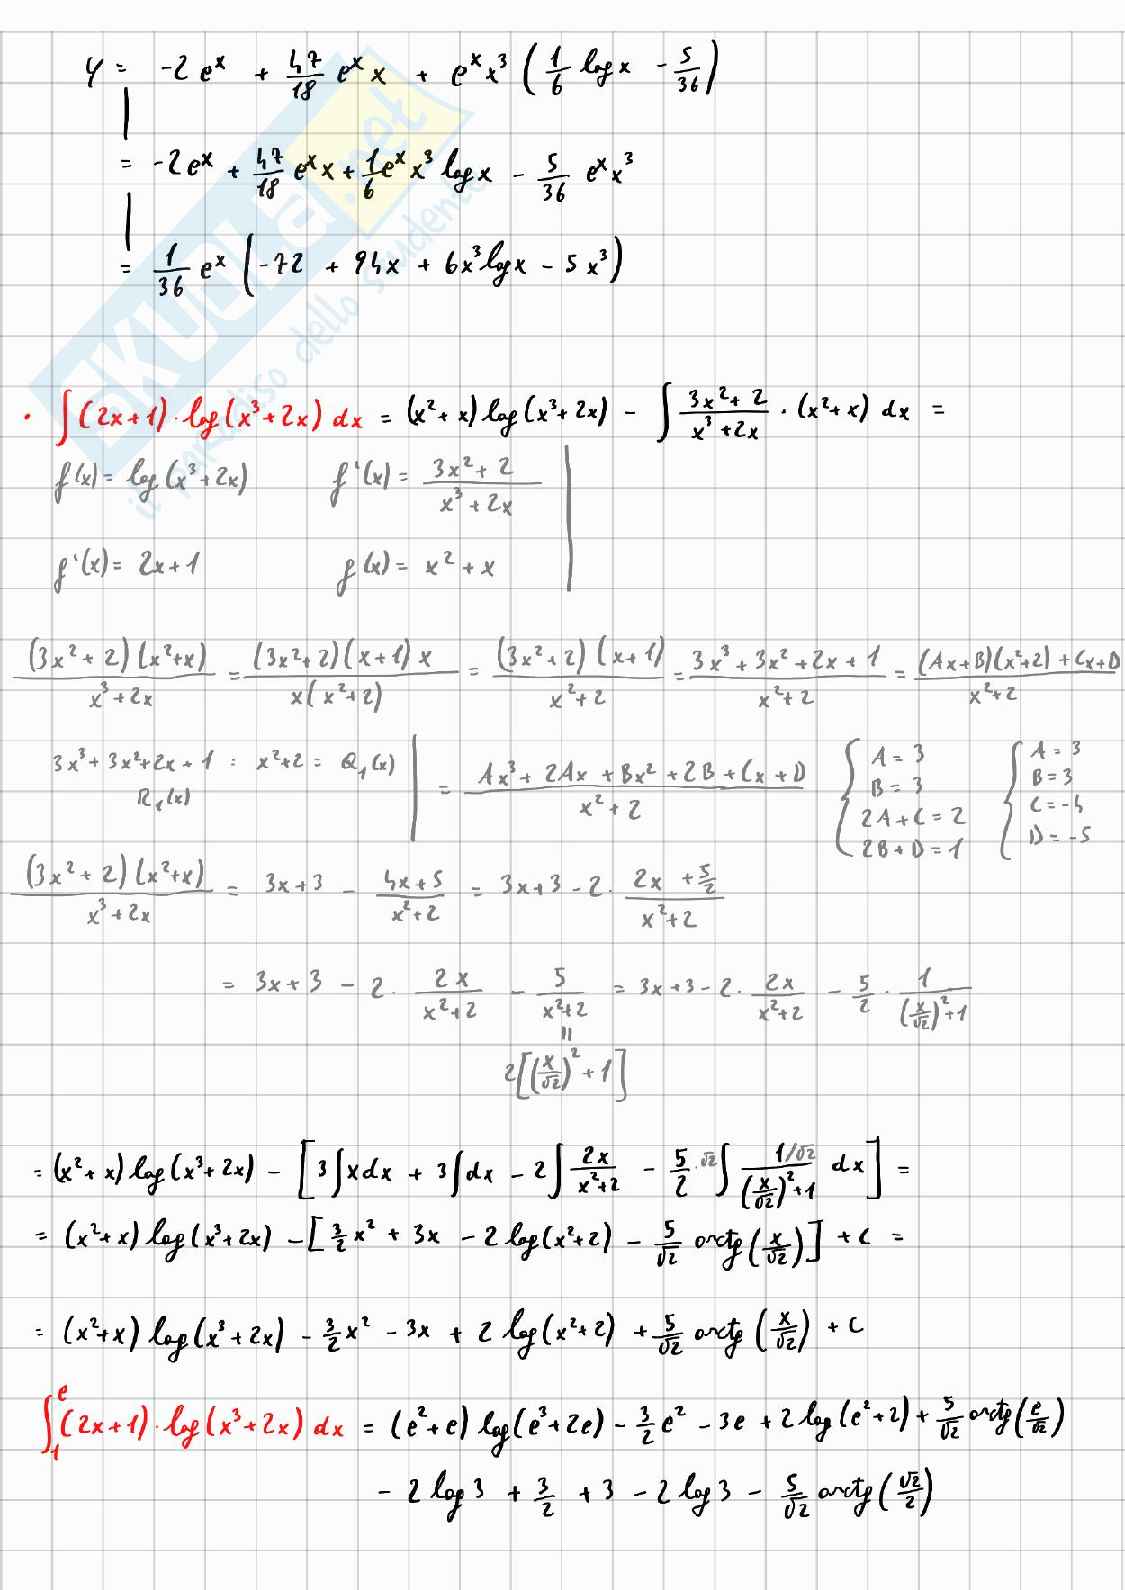 y = -2e^x + 47/18 e^x x + e^x x³ (1/6 log x - 5/36)
= -2e^x + 47/18 e^x x + 1/6 e^x x³ log x - 5/36 e^x x³
= 1/36 e^x (-72 + 94x + 6x³ log x - 5x³)
SKUOLA.net
il paradiso dello studente
• ∫(2x+1)·log(x³+2x) dx = (x²+x) log(x³+2x) - ∫ (3x²+2)/(x³+2x) · (x²+x) dx =
f(x) = log(x³+2x) f'(x) = (3x²+2)/(x³+2x)
g'(x) = 2x+1 g(x) = x²+x
(3x²+2)(x²+x)/(x³+2x) = (3x²+2)(x+1)x/(x(x²+2)) = (3x²+2)(x+1)/(x²+2) = (3x³+3x²+2x+1)/(x²+2) = ((Ax+B)(x²+2)+Cx+D)/(x²+2)
3x³+3x²+2x+1 : x²+2 = Q₁(x) = (Ax³+2Ax+Bx²+2B+Cx+D)/(x²+2) { A = 3 { A = 3
R₁(x) B = 3 B = 3
2A+C = 2 C = -4
2B+D = 1 D = -5
(3x²+2)(x²+x)/(x³+2x) = 3x+3 - (4x+5)/(x²+2) = 3x+3 - 2 · (2x + 5/2)/(x²+2)
= 3x+3 - 2 · 2x/(x²+2) - 5/(x²+2) = 3x+3 - 2 · 2x/(x²+2) - 5/2 · 1/((x/√2)²+1)
=
2[(x/√2)² + 1]
= (x²+x) log(x³+2x) - [3∫x dx + 3∫dx - 2∫ 2x/(x²+2) - 5/2 ·√2 ∫ (1/√2)/((x/√2)²+1) dx] =
= (x²+x) log(x³+2x) - [3/2 x² + 3x - 2 log(x²+2) - 5/√2 arctg(x/√2)] + C =
= (x²+x) log(x³+2x) - 3/2 x² - 3x + 2 log(x²+2) + 5/√2 arctg(x/√2) + C
∫₁^e (2x+1)·log(x³+2x) dx = (e²+e) log(e³+2e) - 3/2 e² - 3e + 2 log(e²+2) + 5/√2 arctg(e/√2)
- 2 log 3 + 3/2 + 3 - 2 log 3 - 5/√2 arctg(√2/2)